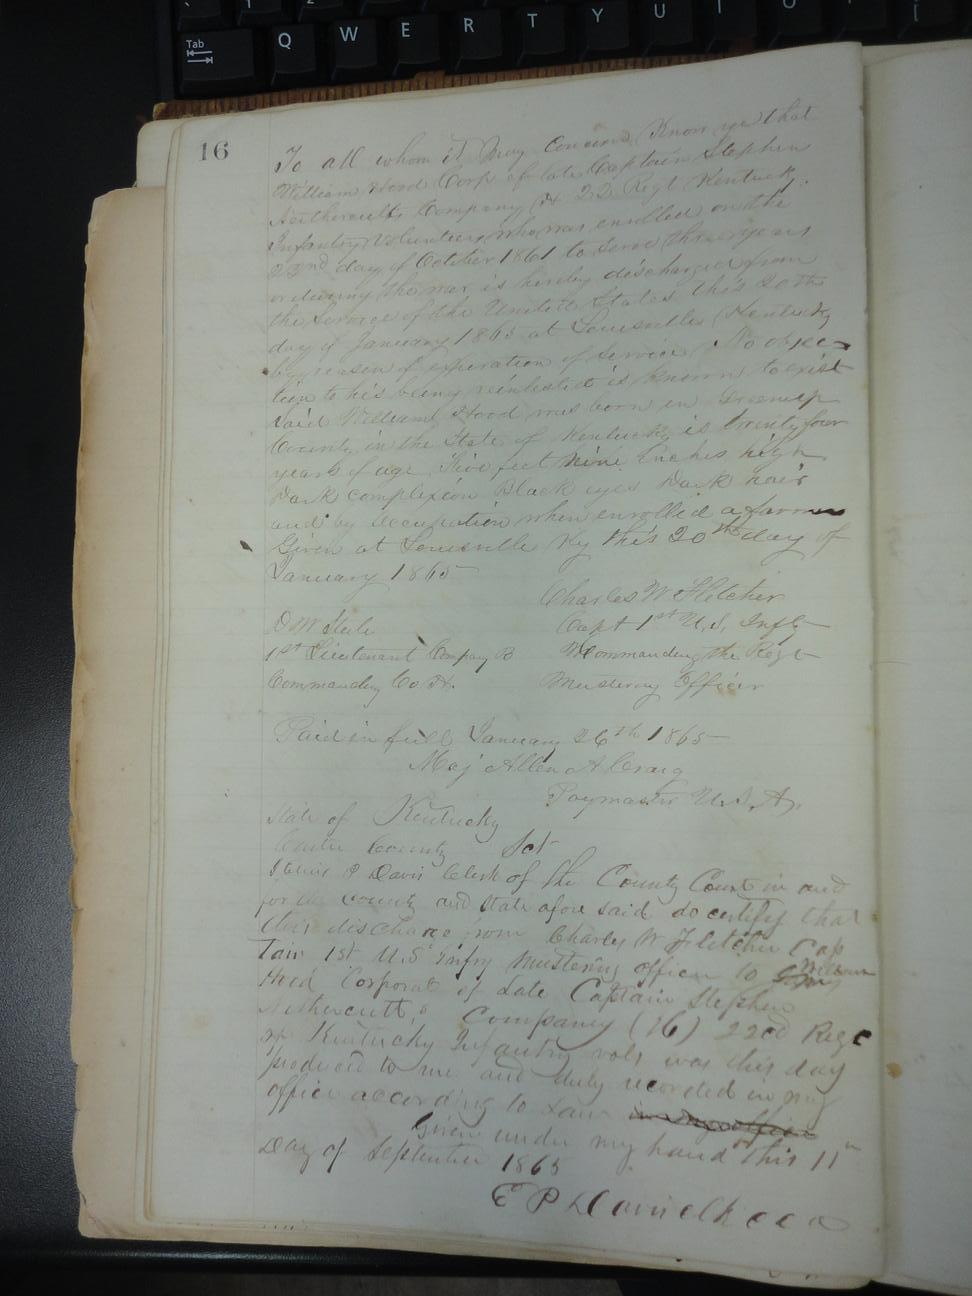 Tab Q W E R T Y U
16
To all whom it May Concern Know ye that
William Hood Corp of late Captain Stephen
Nethercutts Company (H 22 Regt Kentucky
Infantry Volunteers who was enrolled on the
22nd day of October 1861 to serve three years
or during the war is hereby discharged from
the Service of the United States this 20th
day of January 1865 at Louisville Kentucky
by reason of expiration of Service No objec-
tion to his being reinlested is known to exist
Said William Hood was born in Greenup
County in the State of Kentucky is twenty four
years of age Five feet nine Inches high
Dark complexion Black eyes Dark hair
and by occupation when enrolled a farmer
Given at Louisville Ky this 20th day of
January 1865
Charles W Fletcher
D W Steele Capt 1st U.S. Infty
1st Lieutenant Company B Commanding the Regt
Commanding Co H. Mustering Officer
Paid in full January 26th 1865
Maj Allen A Craig
Paymaster U.S.A.
State of Kentucky
Carter County Sct
P Davis Clerk of the County Court in and
for the county and state afore said do certify that
this discharge from Charles W Fletcher Cap
tain 1st U.S Infry Mustering officer to William
Hood Corporal of Late Captain Stephen
Nethercutts Company (H) 22nd Regt
of Kentucky Infantry vols was this day
produced to me and duly recorded in my
office according to Law in my office
Given under my hand this 11th
Day of September 1865